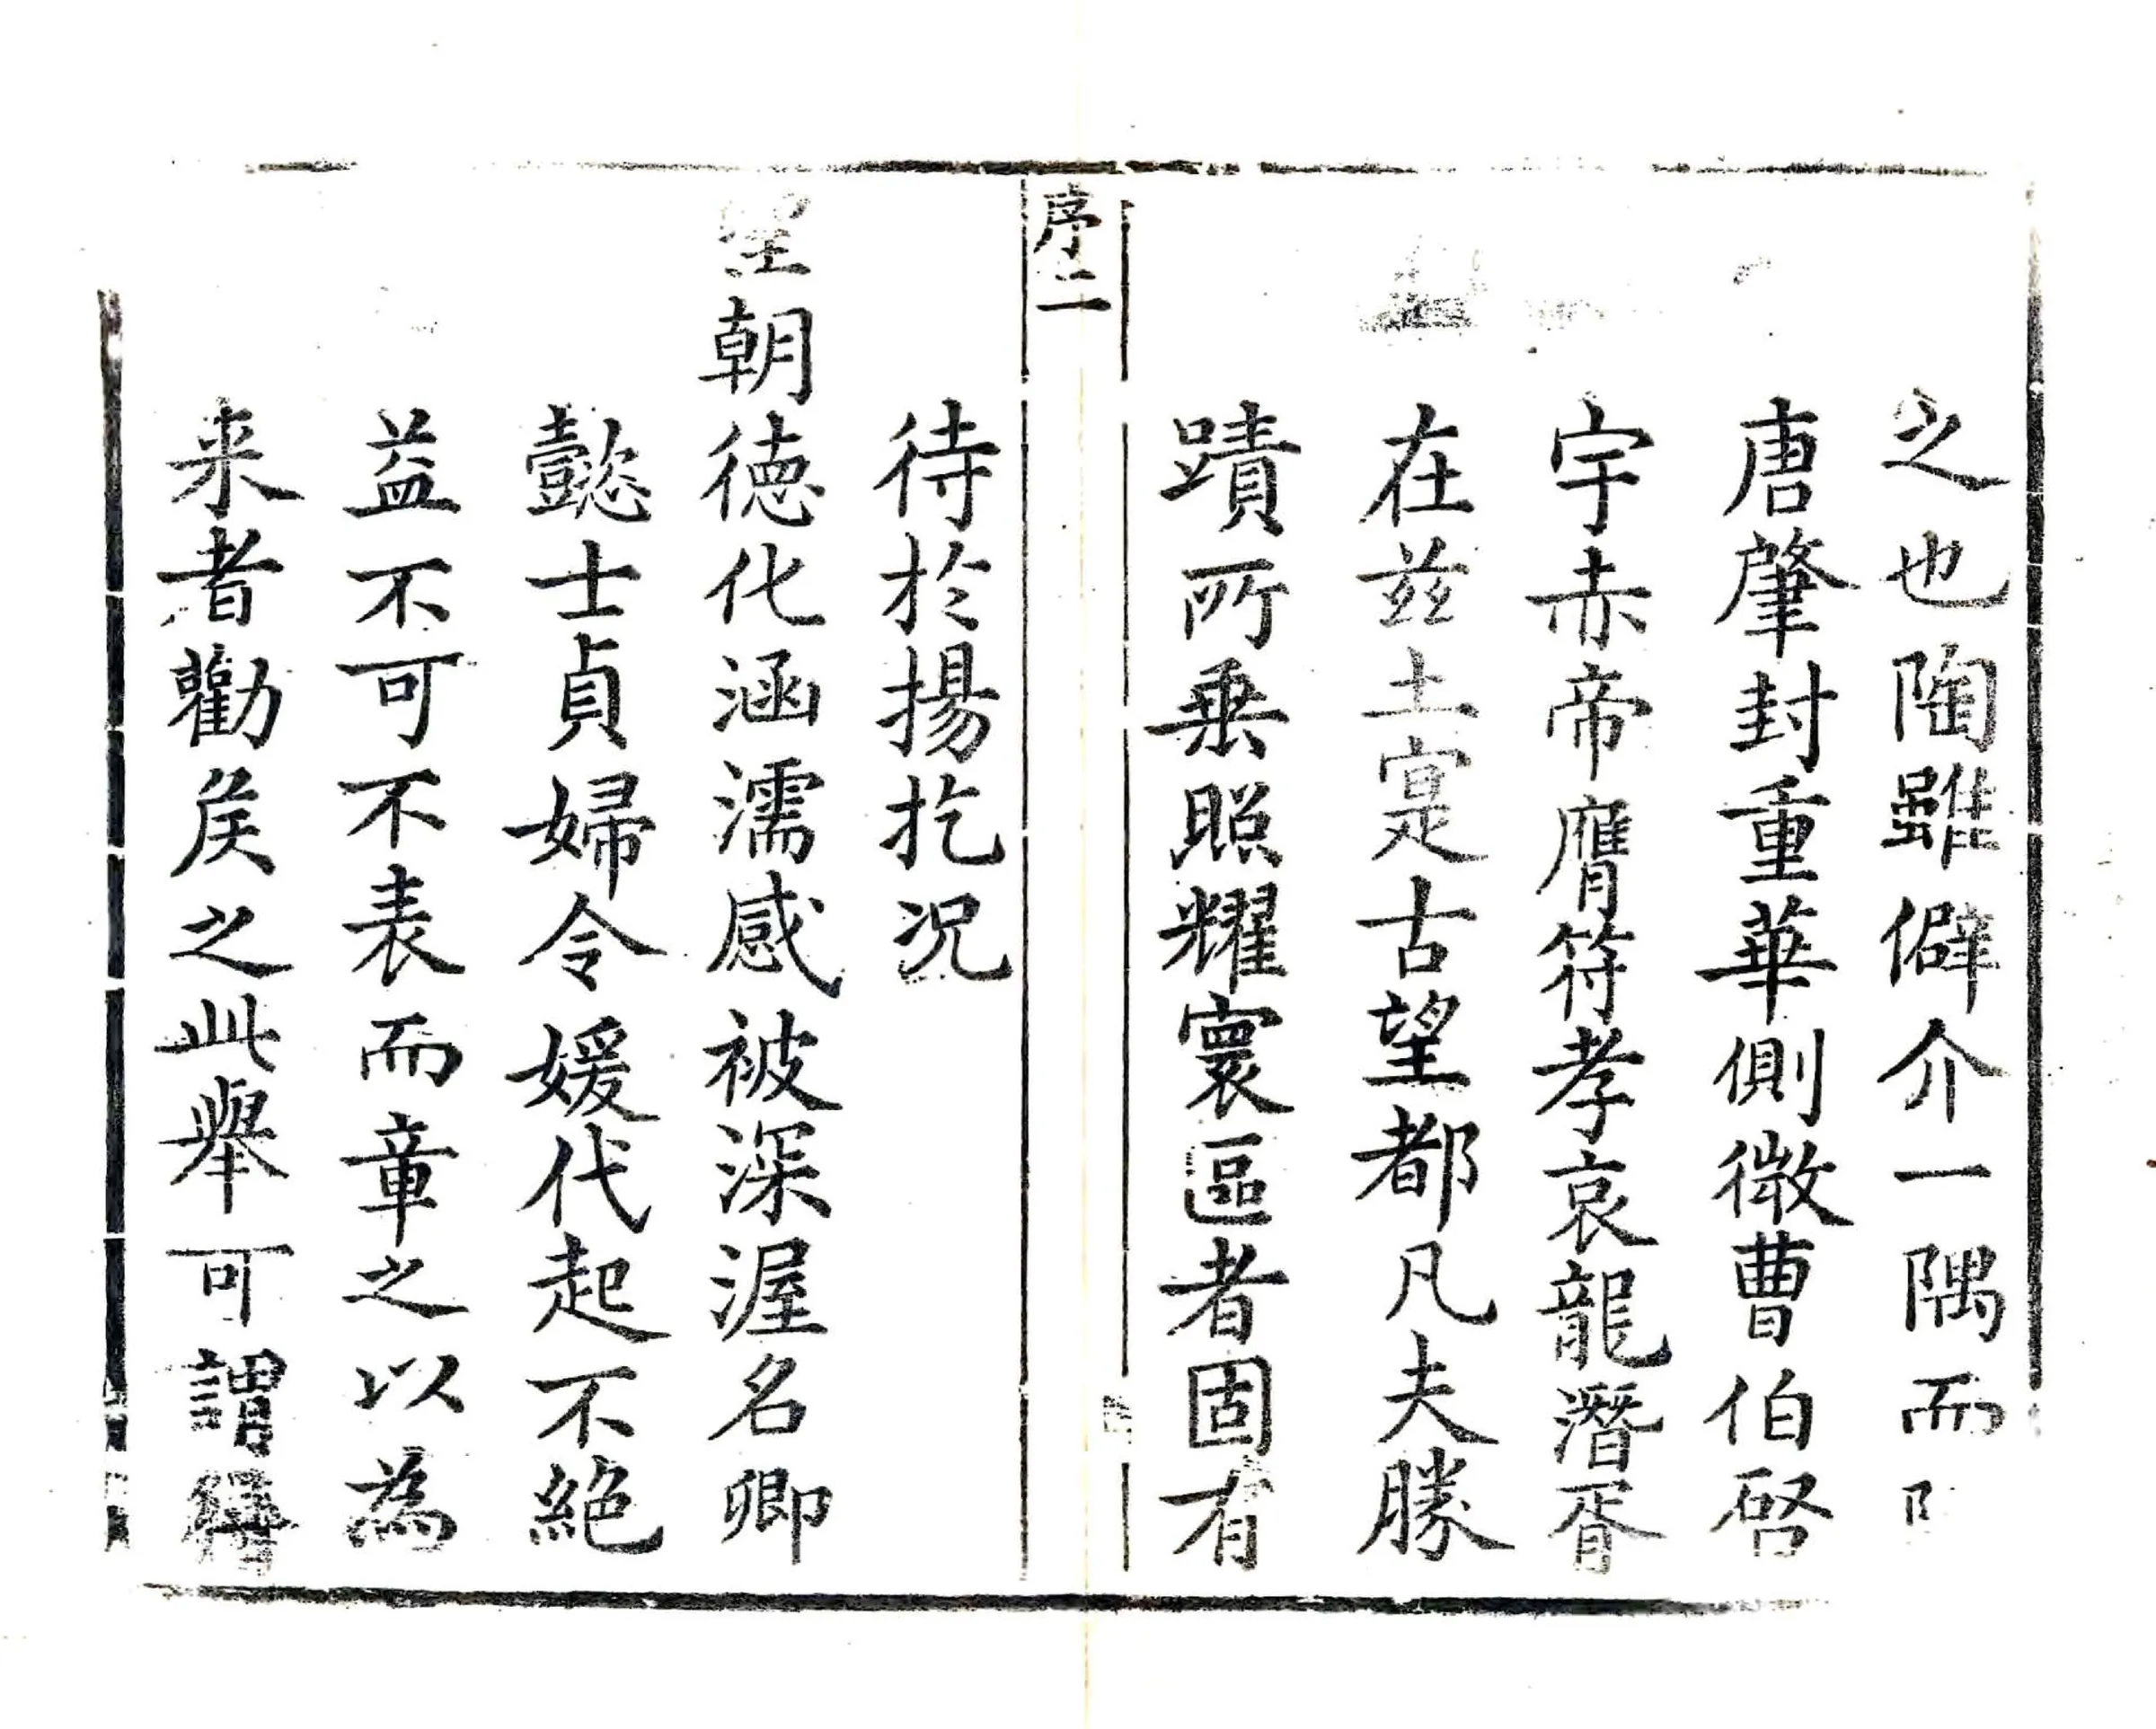 之也陶雖僻介一隅而
唐肇封重華側微曹伯啓
宇赤帝膺符孝哀龍潛胥
在兹土寔古望都凡夫勝
蹟所垂照耀寰區者固有
序二
待於揚扢况
皇朝德化涵濡感被深渥名卿
懿士貞婦令媛代起不絕
益不可不表而章之以為
来者勸矣之此舉可謂